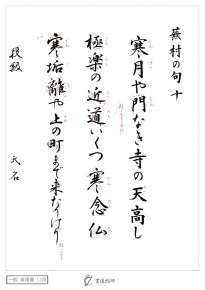 蕪村の句十
寒月や門なき寺の天高し
極楽の近道いくつ寒念仏
寒垢離や上の町まで来たりけり
段級
氏名
一般 条幅書 12月
書道教師